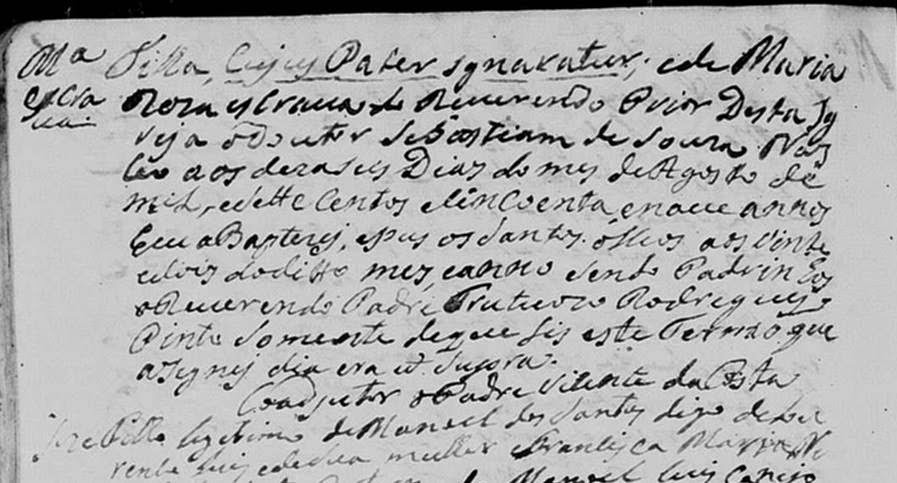 Ma
escra
va
Filha, Cujus Pater ignaratur, e de Maria
Roza escrava do Reverendo Prior Desta Ig
reja o Douter Sebastiam de Souza Nas
ceo aos dezaseis Diaz do mes de Agosto de
mil, e sette Centos e sincoenta, e nove annos
Eeu a Baptezej, e pus os Santos. olios aos vinte
e dois do ditto mes, e anno sendo Padrinhos
o Reverendo Padre Frutuozo Rodrigues
Pinto somente de que fis este Termo que
asignej dia era ut supra.
Coadjutor o Padre Vicente da Costa
Joze Filho legitimo de Manoel dos Santos digo de
e de sua mulher Francisca Maria N
Manoel Luis